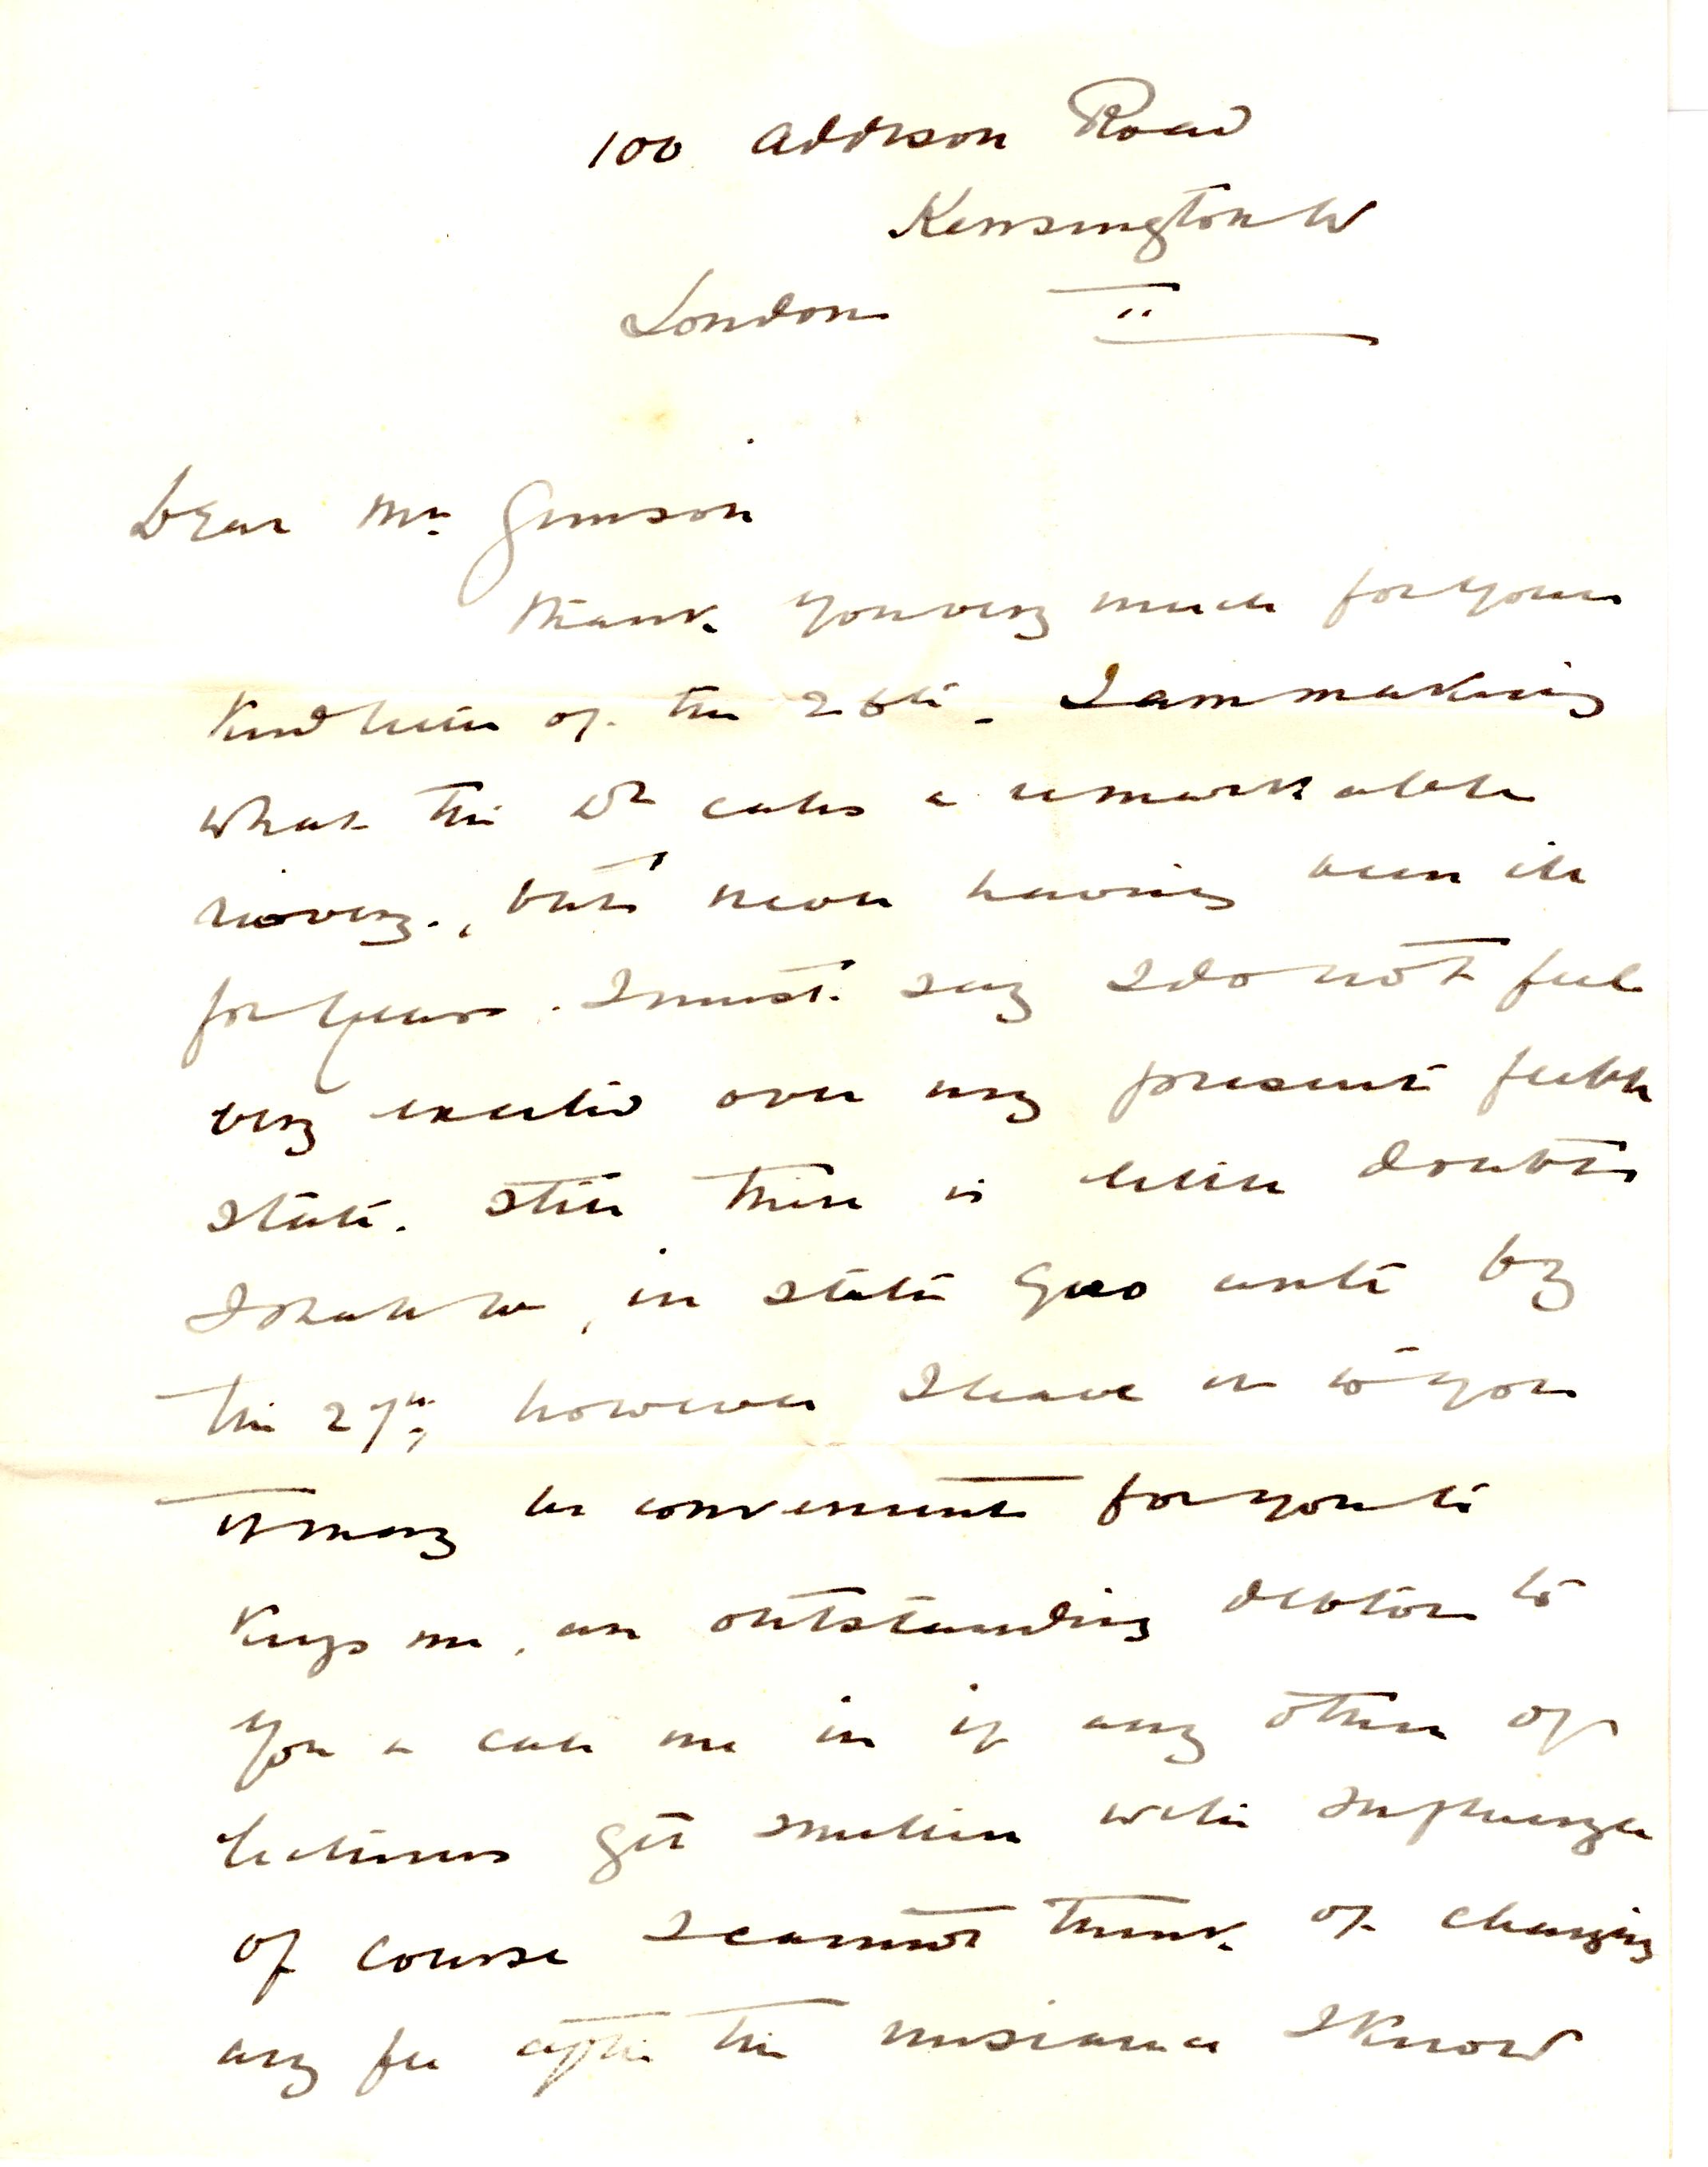 100 Addison Road
Kensington W
London
Dear Mr Gimson
Thank you very much for your
kind letter of the 26th. I am making
what the Dr calls a remarkable
recovery, but never having been ill
for years. I must say I do not feel
very excited over my present feeble
state. Still there is little doubt
I shall be, in statu quo ante by
the 27th, however I leave it to you
it may be convenient for you to
keep me, an outstanding debtor to
you & call me in if any other of
lecturers get smitten with Influenza
of course I cannot think of charging
any fee after the nuisance I know